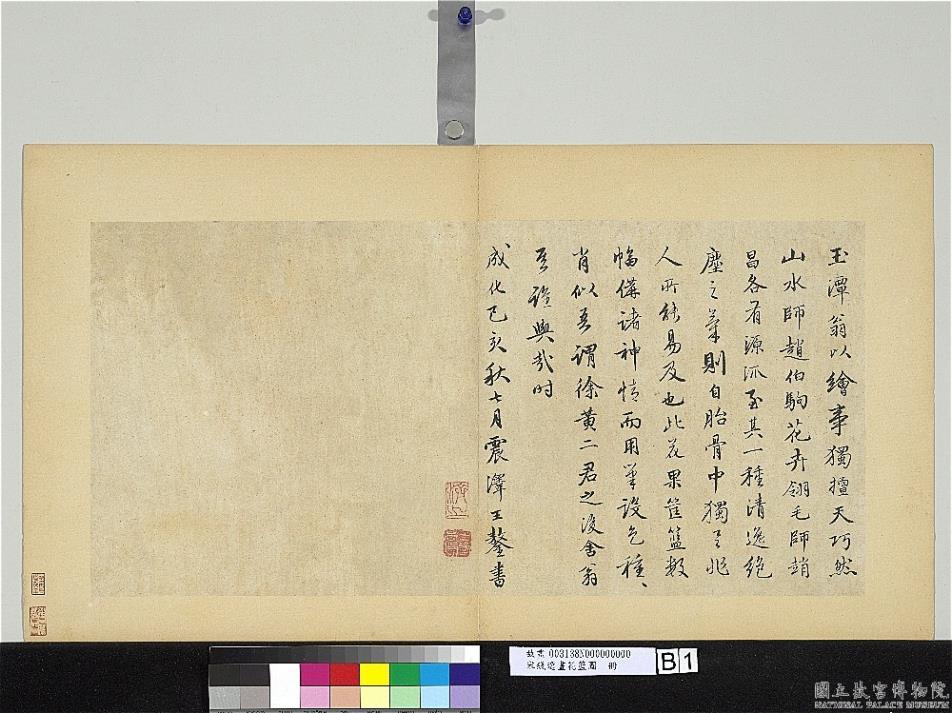 玉潭翁以繪事獨擅天巧然
山水師趙伯駒花卉翎毛師趙
昌各有源流至其一種清逸絕
塵之筆則自胎骨中獨 非
人所能易及也此花果筐籃數
幅備諸神情而用筆設色種〻
肖似吾謂徐黃二君之後舍翁
吾誰與哉時
成化己亥秋七月震澤王鏊書
故畫 0031385000000000
宋錢選畫花籃圖 冊
B1
國立故宮博物院
NATIONAL PALACE MUSEUM